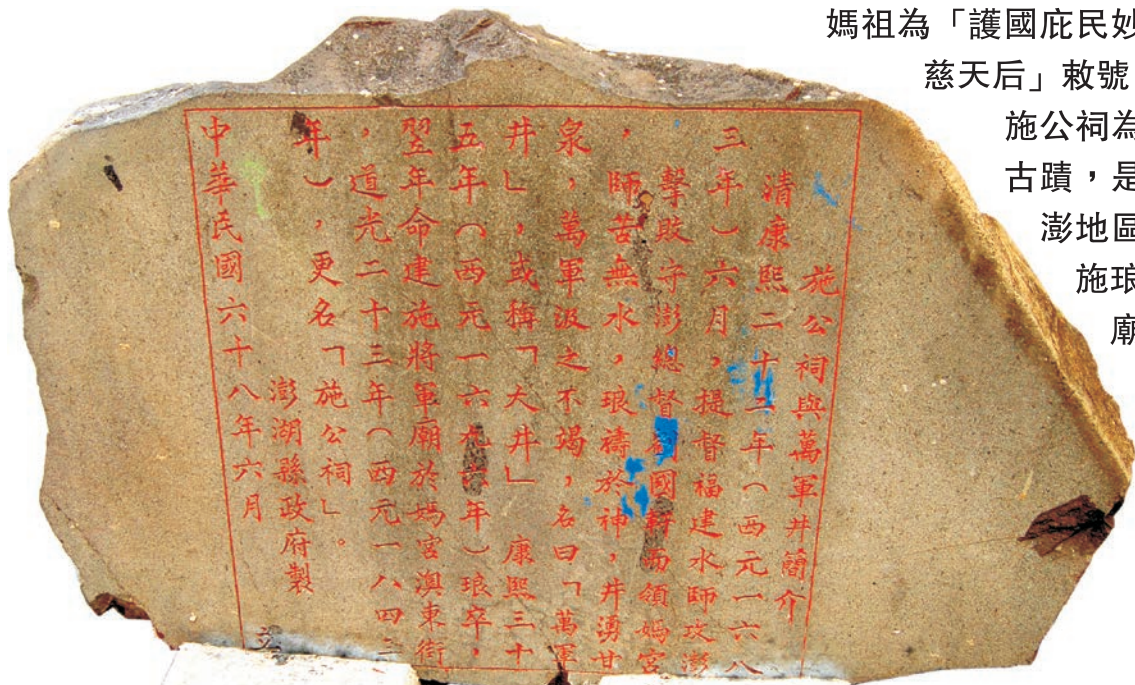 媽祖為「護國庇民妙
慈天后」敕號
施公祠為
古蹟，是
澎地區
施琅
廟
施公祠與萬軍井簡介
清康熙二十二年（西元一六八
三年）六月，提督福建水師攻澎
擊敗守澎總督劉國軒而領媽宮
，師苦無水，琅禱於神，井湧甘
泉，萬軍汲之不竭，名曰「萬軍
井」，或稱「大井」康熙三十
五年（西元一六九六年）琅卒，
翌年命建施將軍廟於媽宮澳東街
，道光二十三年（西元一八四三
年），更名「施公祠」。
澎湖縣政府製
中華民國六十八年六月 立